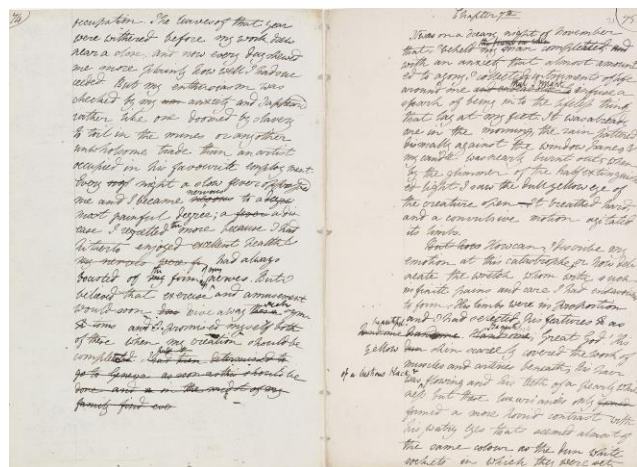 occupation. The leaves of that year
were withered before my work drew
near a close, and now every day shewed
me more plainly how well I had suc
ceeded. But my enthusiasm was
checked by my anxiety and I appeared
rather like one doomed by slavery
to toil in the mines or any other
unwholsome trade than an artist
occupied in his favourite employment
Every night a slow fever oppressed
me and I became nervous to a
most painful degree; a dis
ease I regretted the more because I had
hitherto enjoyed excellent health &
had always
boasted of the firmness of my nerves. But I
beleived that exercise and amusement
would soon drive away such symp
toms and I promised myself both
of these when my creation should be
completed. I had then determined to
go to Geneva as soon as this should be
done and in the midst of my
family find ever
Chapter 7th
It was on a dreary night of November
that I beheld my man completed
with an anxiety that almost amount
ed to agony, I collected instruments of life
around me that I might infuse a
spark of being into the lifeless thing
that lay at my feet. It was already
one in the morning, the rain pattered
dismally against the window panes &
my candle was nearly burnt out, when
by the glimmer of the half extinguish
ed light I saw the dull yellow eye of
the creature open. It breathed hard
and a convulsive motion agitated
its limbs.
But how How can I describe my
emotion at this catastrophe; or how deli
neate the wretch whom with such
infinite pains and care I had endeavoured
to form. His limbs were in proportion
and I had selected his features as
beautiful
handsome Handsome Great God! His
yellow skin scarcely covered the work of
muscles and arteries beneath; his hair
of a lustrous black &
was flowing and his teeth of a pearly white
ness but these luxuriancies only
formed a more horrid contrast with
his watry eyes that seemed almost of
the same colour as the dun white
sockets in which they were set